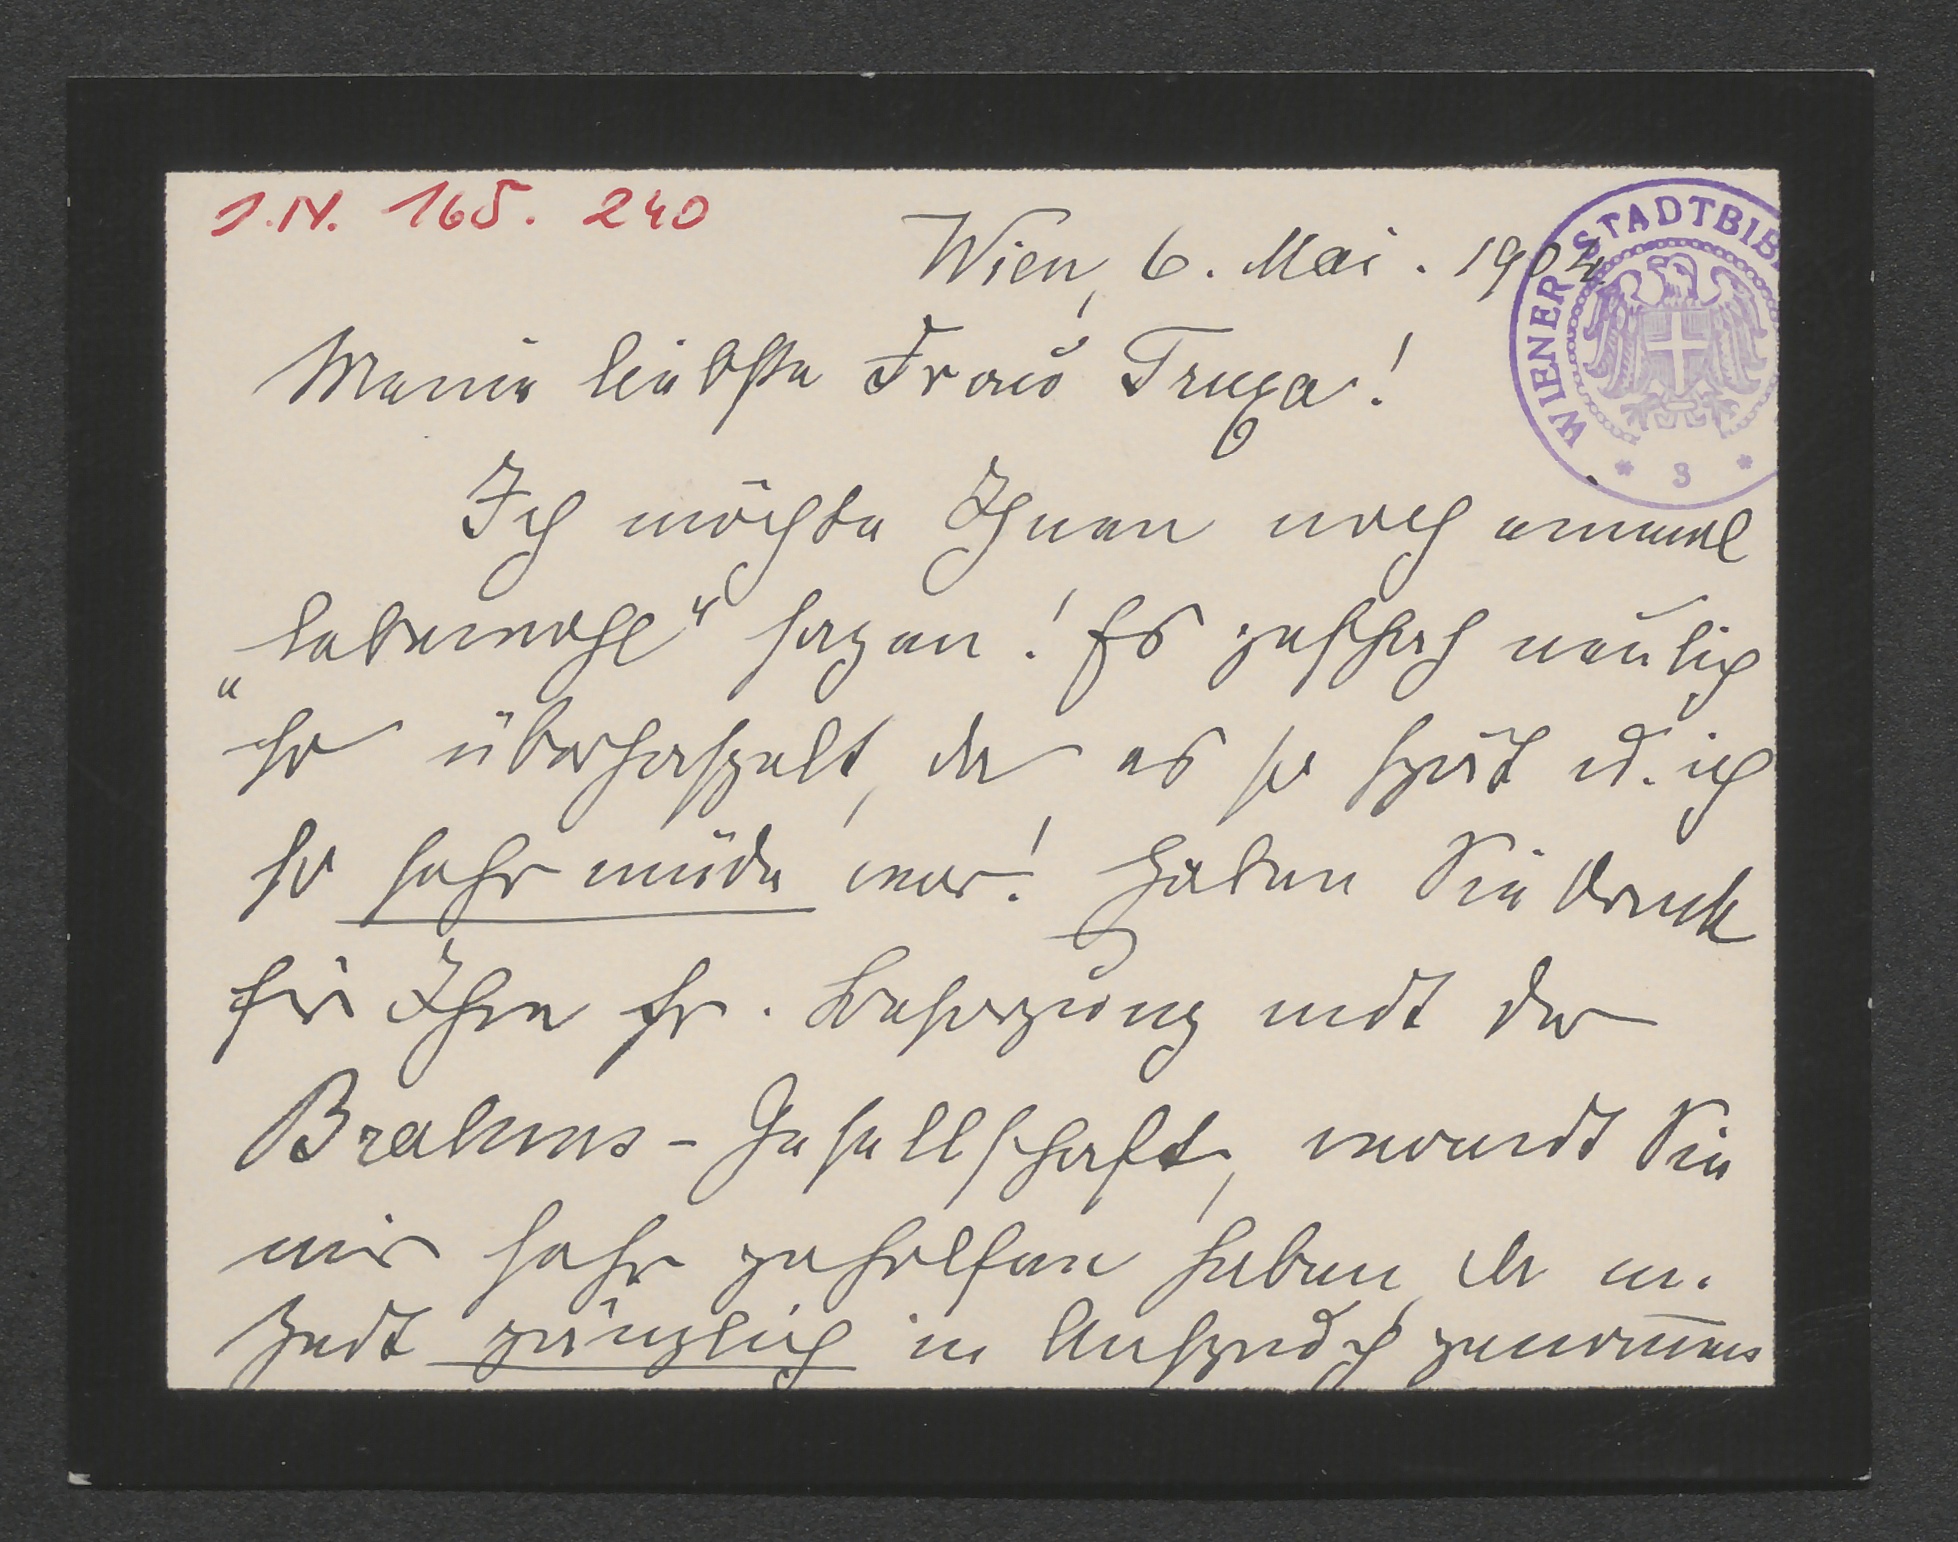 I.N. 165. 240
WIENER STADTBIB
* 3 *
Wien, 6. Mai. 1904
Meine liebste Frau Truxa!
Ich möchte Ihnen noch einmal
„Lebewohl" sagen! Es geschah neulich
so überhaspelt, da es so spät u. ich
so sehr müde war! Haben Sie Dank
für Ihre fr. Besorgung mit der
Brahms-Gesellschaft, womit Sie
mir sehr geholfen haben, da m.
Zeit gänzlich in Anspruch genommen